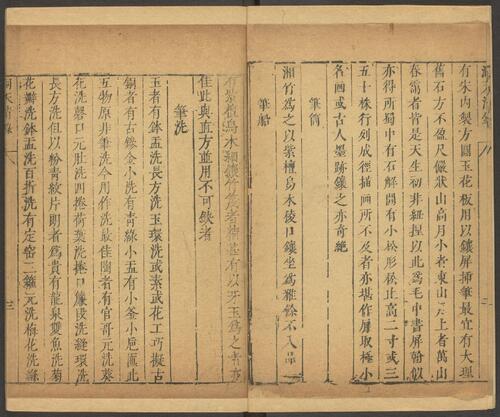 有宋內製方圓玉花板用以鑲屏插筆最宜有大理
舊石方不盈尺儼狀山高月小者東山月上者萬山
春靄者皆是天生初非紐捏以此為毛中書屏翰似
亦得所蜀中有石解開有小松形松止高二寸或三
五十株行列成徑描畫所不及者亦堪作屏取極小
名畫或古人墨跡鑲之亦奇絕
筆筒
湘竹為之以紫檀烏木稜口鑲坐為雅餘不入品
筆船
有紫檀烏木細鑲竹篾者精甚有以牙玉為之者亦
佳此與直方並用不可缺者
筆洗
玉者有鉢盂洗長方洗玉環洗或素或花工巧擬古
銅者有古鏒金小洗有青綠小盂有小釜小巵匜此
五物原非筆洗今用作洗最佳陶者有官哥元洗葵
花洗罄口元肚洗四捲荷葉洗捲口簾段洗縫環洗
長方洗但以粉青紋片朗者為貴有龍泉雙魚洗菊
花瓣洗鉢盂洗百折洗有定窑三箍元洗梅花洗絛
洞天清錄
三